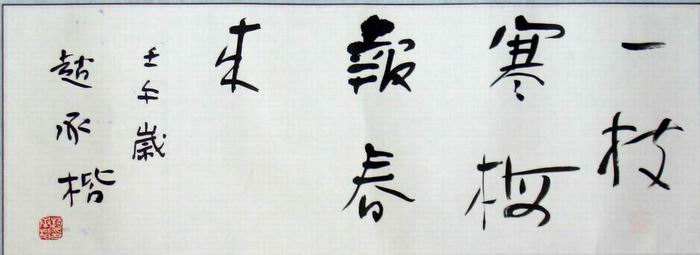 一枝
寒梅
報春
来
壬午歲
趙承楷